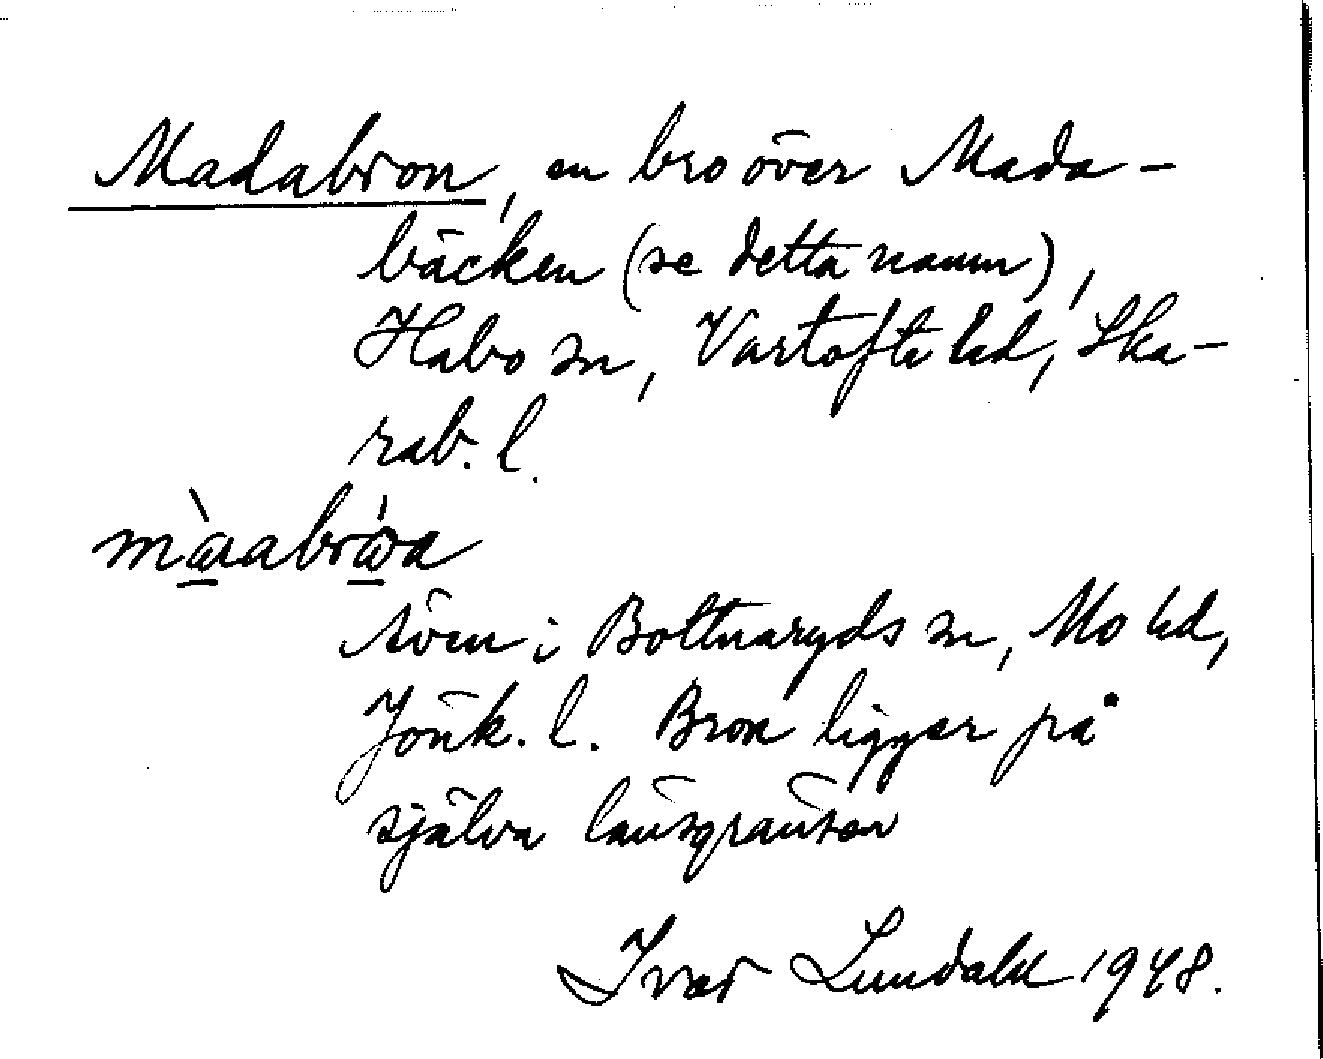 Madabron, en bro över Mada-
bäcken (se detta namn),
Habo sn, Vartofta hd, Ska-
rab. l.
även i Bottnaryds sn, Mo hd,
Jönk. l. Bron ligger på
själva länsgränsen
Ivar Lundahl 1948.